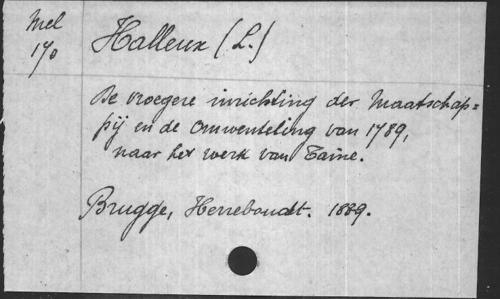 Mel
170
Halleux (L.)
De vroegere inrichting der Maatschap=
pij en de Omwenteling van 1789,
naar het werk van Taine.
Brugge, Herreboudt. 1889.